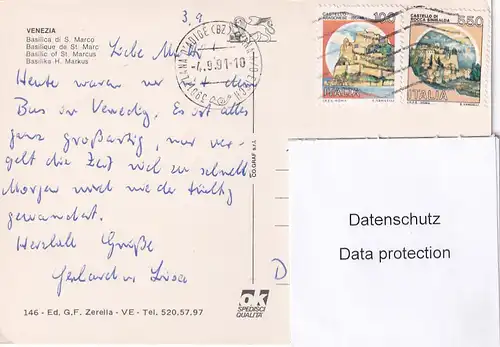 VENEZIA
Basilica di S. Marco
Basilique de St. Marc
Basilic of St. Marcus
Basilika H. Markus
3.9
Liebe
Heute waren wir mit dem
Bus in Venedig. Es ist alles
ganz großartig, nur ver-
geht die Zeit viel zu schnell.
Morgen wird wieder tüchtig
gewandert.
Herzliche Grüße
Gerhard u. Luise
146 - Ed. G.F. Zerella - VE - Tel. 520.57.97
CO.GRAF s.r.l.
ok
SPEDISCI
QUALITÀ
-4.9.91-10
100
ITALIA
CASTELLO DI
ROCCA SINIBALDA
550
ITALIA
D
Datenschutz
Data protection